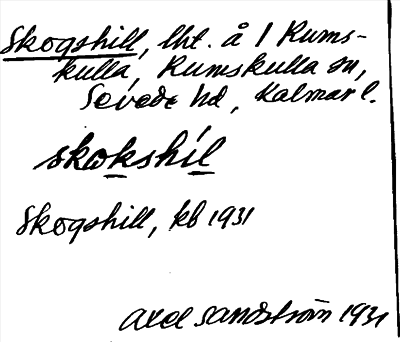 Skogshill, lht. å 1 Rums-
kulla, Rumskulla sn,
Sevede hd, Kalmar l.
skokshíl
Skogshill, kb 1931
Axel Sandström 1931